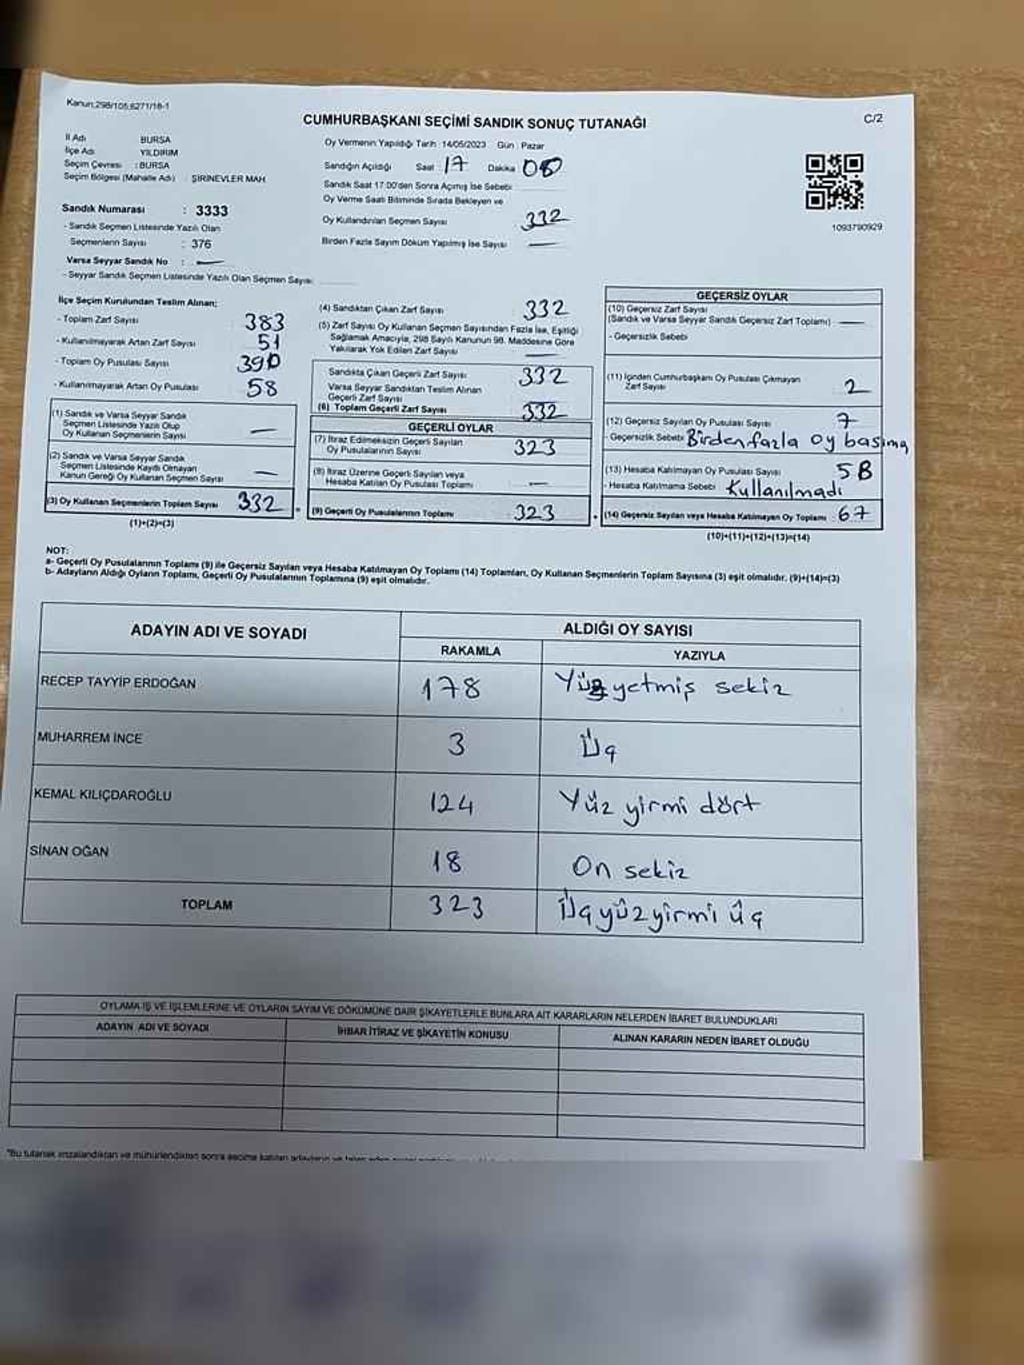 Kanun:298/105;6271/18-1
CUMHURBAŞKANI SEÇİMİ SANDIK SONUÇ TUTANAĞI
C/2
İl Adı BURSA
İlçe Adı YILDIRIM
Seçim Çevresi : BURSA
Seçim Bölgesi (Mahalle Adı) : ŞİRİNEVLER MAH.
Oy Vermenin Yapıldığı Tarih : 14/05/2023 Gün : Pazar
Sandığın Açıldığı Saat : 17 Dakika 00
Sandık Saat 17:00'den Sonra Açımış İse Sebebi
Oy Verme Saati Bitiminde Sırada Bekleyen ve
Oy Kullandırılan Seçmen Sayısı 332
Birden Fazla Sayım Döküm Yapılmış İse Sayısı —
1093790929
Sandık Numarası : 3333
- Sandık Seçmen Listesinde Yazılı Olan
Seçmenlerin Sayısı : 376
Varsa Seyyar Sandık No : —
- Seyyar Sandık Seçmen Listesinde Yazılı Olan Seçmen Sayısı:
İlçe Seçim Kurulundan Teslim Alınan;
- Toplam Zarf Sayısı 383
- Kullanılmayarak Artan Zarf Sayısı 51
- Toplam Oy Pusulası Sayısı 390
- Kullanılmayarak Artan Oy Pusulası 58
(1) Sandık ve Varsa Seyyar Sandık
Seçmen Listesinde Yazılı Olup
Oy Kullanan Seçmenlerin Sayısı —
(2) Sandık ve Varsa Seyyar Sandık
Seçmen Listesinde Kaydı Olmayan
Kanun Gereği Oy Kullanan Seçmen Sayısı —
(3) Oy Kullanan Seçmenlerin Toplam Sayısı 332
(1)+(2)=(3)
(4) Sandıktan Çıkan Zarf Sayısı 332
(5) Zarf Sayısı Oy Kullanan Seçmen Sayısından Fazla İse, Eşitliği
Sağlamak Amacıyla, 298 Sayılı Kanunun 98. Maddesine Göre
Yakılarak Yok Edilen Zarf Sayısı —
Sandıkta Çıkan Geçerli Zarf Sayısı 332
Varsa Seyyar Sandıktan Teslim Alınan
Geçerli Zarf Sayısı
(6) Toplam Geçerli Zarf Sayısı 332
GEÇERLİ OYLAR
(7) İtiraz Edilmeksizin Geçerli Sayılan
Oy Pusulalarının Sayısı 323
(8) İtiraz Üzerine Geçerli Sayılan veya
Hesaba Katılan Oy Pusulası Toplamı —
(9) Geçerli Oy Pusulalarının Toplamı 323
GEÇERSİZ OYLAR
(10) Geçersiz Zarf Sayısı
(Sandık ve Varsa Seyyar Sandık Geçersiz Zarf Toplamı) —
- Geçersizlik Sebebi
(11) İçinden Cumhurbaşkanı Oy Pusulası Çıkmayan
Zarf Sayısı 2
(12) Geçersiz Sayılan Oy Pusulası Sayısı 7
- Geçersizlik Sebebi Birden fazla oy basıma
(13) Hesaba Katılmayan Oy Pusulası Sayısı 58
- Hesaba Katılmama Sebebi Kullanılmadı
(14) Geçersiz Sayılan veya Hesaba Katılmayan Oy Toplamı : 67
(10)+(11)+(12)+(13)=(14)
NOT:
a- Geçerli Oy Pusulalarının Toplamı (9) ile Geçersiz Sayılan veya Hesaba Katılmayan Oy Toplamı (14) Toplamları, Oy Kullanan Seçmenlerin Toplam Sayısına (3) eşit olmalıdır. (9)+(14)=(3)
b- Adayların Aldığı Oyların Toplamı, Geçerli Oy Pusulalarının Toplamına (9) eşit olmalıdır.
ADAYIN ADI VE SOYADI
ALDIĞI OY SAYISI
RAKAMLA YAZIYLA
RECEP TAYYİP ERDOĞAN 178 Yüz yetmiş sekiz
MUHARREM İNCE 3 Üç
KEMAL KILIÇDAROĞLU 124 Yüz yirmi dört
SİNAN OĞAN 18 On sekiz
TOPLAM 323 Üçyüzyirmi üç
OYLAMA İŞ VE İŞLEMLERİNE VE OYLARIN SAYIM VE DÖKÜMÜNE DAİR ŞİKAYETLERLE BUNLARA AİT KARARLARIN NELERDEN İBARET BULUNDUKLARI
ADAYIN ADI VE SOYADI
İHBAR İTİRAZ VE ŞİKAYETİN KONUSU
ALINAN KARARIN NEDEN İBARET OLDUĞU
*Bu tutanak imzalandıktan ve mühürlendikten sonra seçime katılan adayların ve